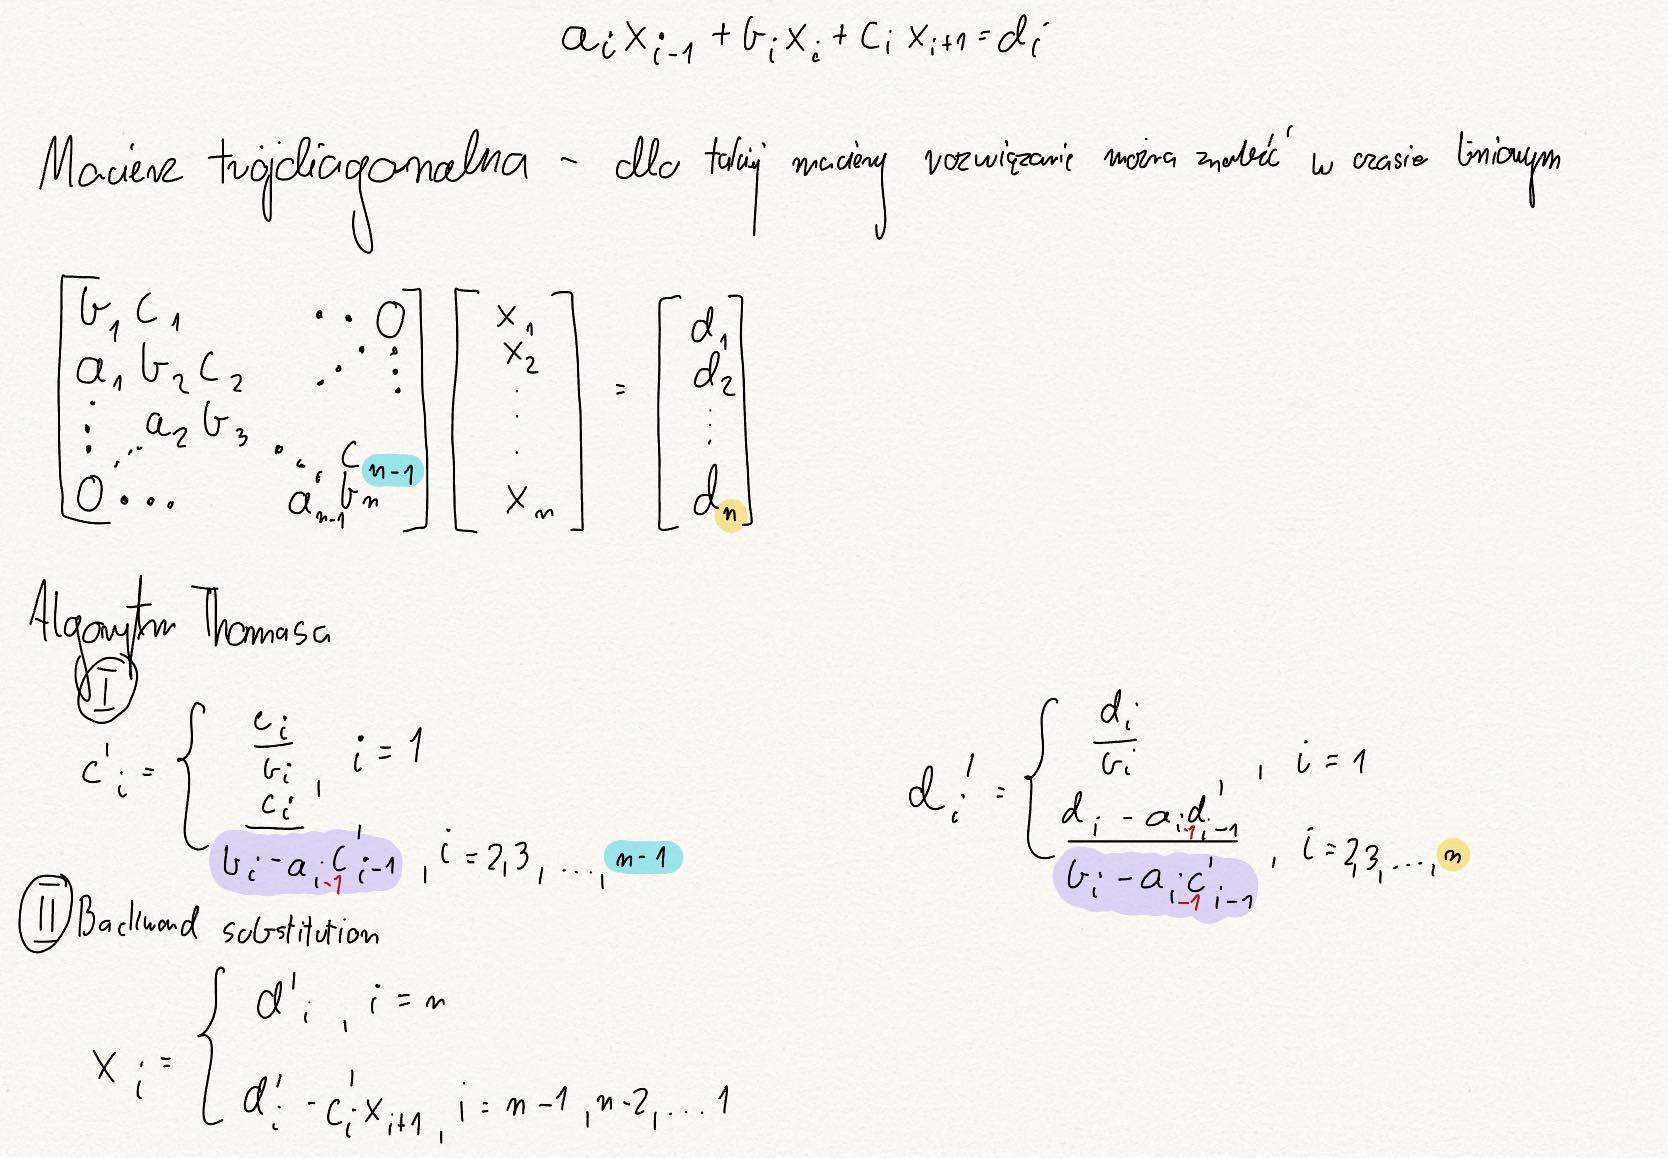 aᵢxᵢ₋₁ + bᵢxᵢ + cᵢxᵢ₊₁ = dᵢ
Macierz trójdiagonalna - dla takiej macierzy rozwiązanie można znaleźć w czasie liniowym
b₁ c₁ ⋅⋅ 0 x₁ d₁
a₁ b₂ c₂ ⋰ ⋮ x₂ d₂
⋮ a₂ b₃ ⋱ ⋮ = ⋮
cₙ₋₁
0 ... aₙ₋₁ bₙ xₙ dₙ
Algorytm Thomasa
I
c'ᵢ = { cᵢ/bᵢ , i = 1
cᵢ/(bᵢ - aᵢ₋₁c'ᵢ₋₁) , i = 2,3, ..., n-1
dᵢ' = { dᵢ/bᵢ , i = 1
(dᵢ - aᵢ₋₁d'ᵢ₋₁)/(bᵢ - aᵢ₋₁c'ᵢ₋₁) , i = 2,3, ..., n
II Backward substitution
xᵢ = { d'ᵢ , i = n
d'ᵢ - c'ᵢxᵢ₊₁ , i = n-1, n-2, ... 1